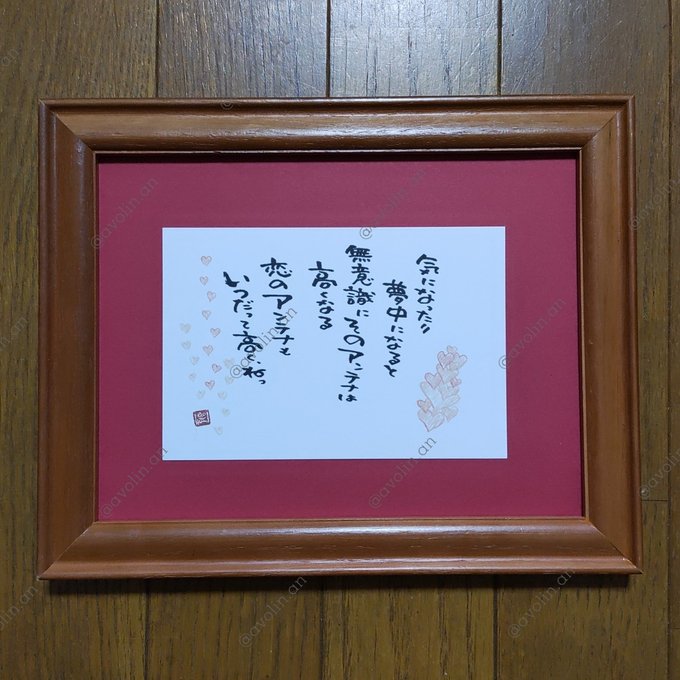 気になったり
夢中になると
無意識にそのアンテナは
高くなる
恋のアンテナも
いつだって高く、ねっ
@avolin.an